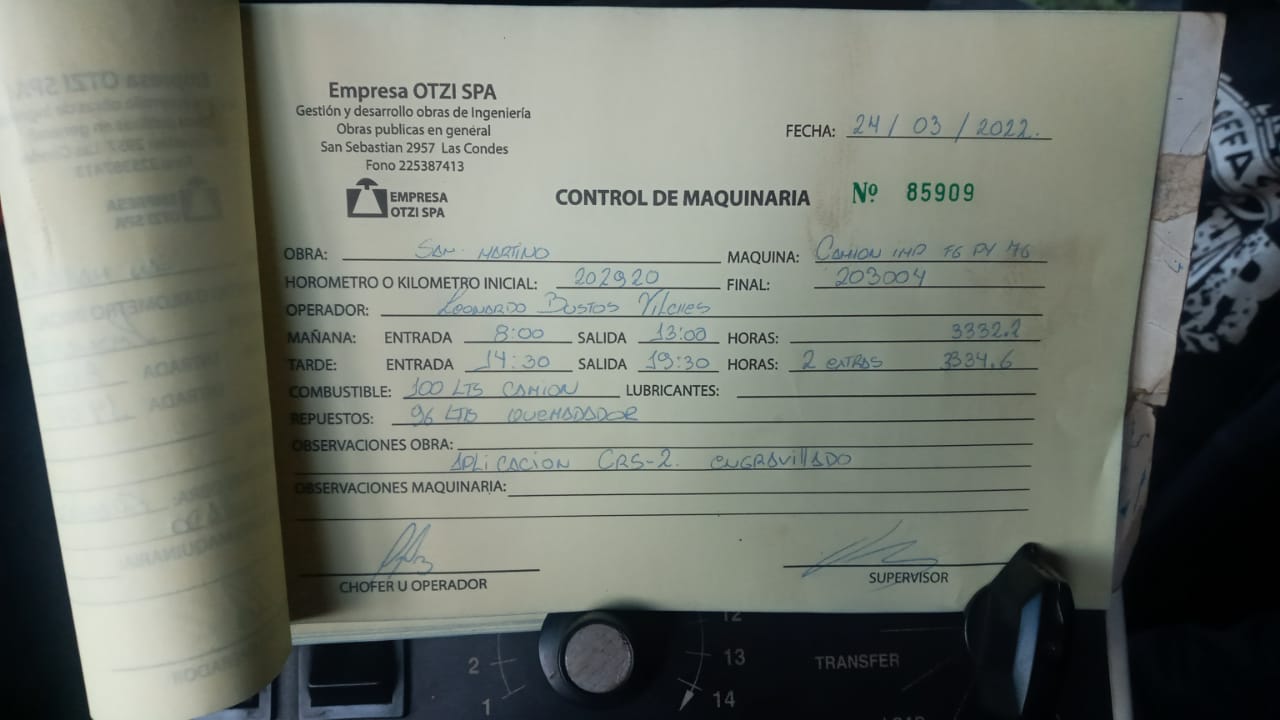 Empresa OTZI SPA
Gestión y desarrollo obras de Ingeniería
Obras publicas en general
San Sebastian 2957 Las Condes
Fono 225387413
EMPRESA
OTZI SPA
FECHA: 24 / 03 / 2022.
CONTROL DE MAQUINARIA Nº 85909
OBRA: SAN MARTINO MAQUINA: CAMION IMP FG PY 76
HOROMETRO O KILOMETRO INICIAL: 202920 FINAL: 203004
OPERADOR: Leonardo Bustos Vilches
MAÑANA: ENTRADA 8:00 SALIDA 13:00 HORAS: 3332.2
TARDE: ENTRADA 14:30 SALIDA 19:30 HORAS: 2 extras 3334.6
COMBUSTIBLE: 100 LTS CAMION LUBRICANTES:
REPUESTOS: 96 LTS QUEMADADOR
OBSERVACIONES OBRA:
APLICACION CRS-2. ENGRAVILLADO
OBSERVACIONES MAQUINARIA:
CHOFER U OPERADOR SUPERVISOR
12
2 13 TRANSFER
1 14